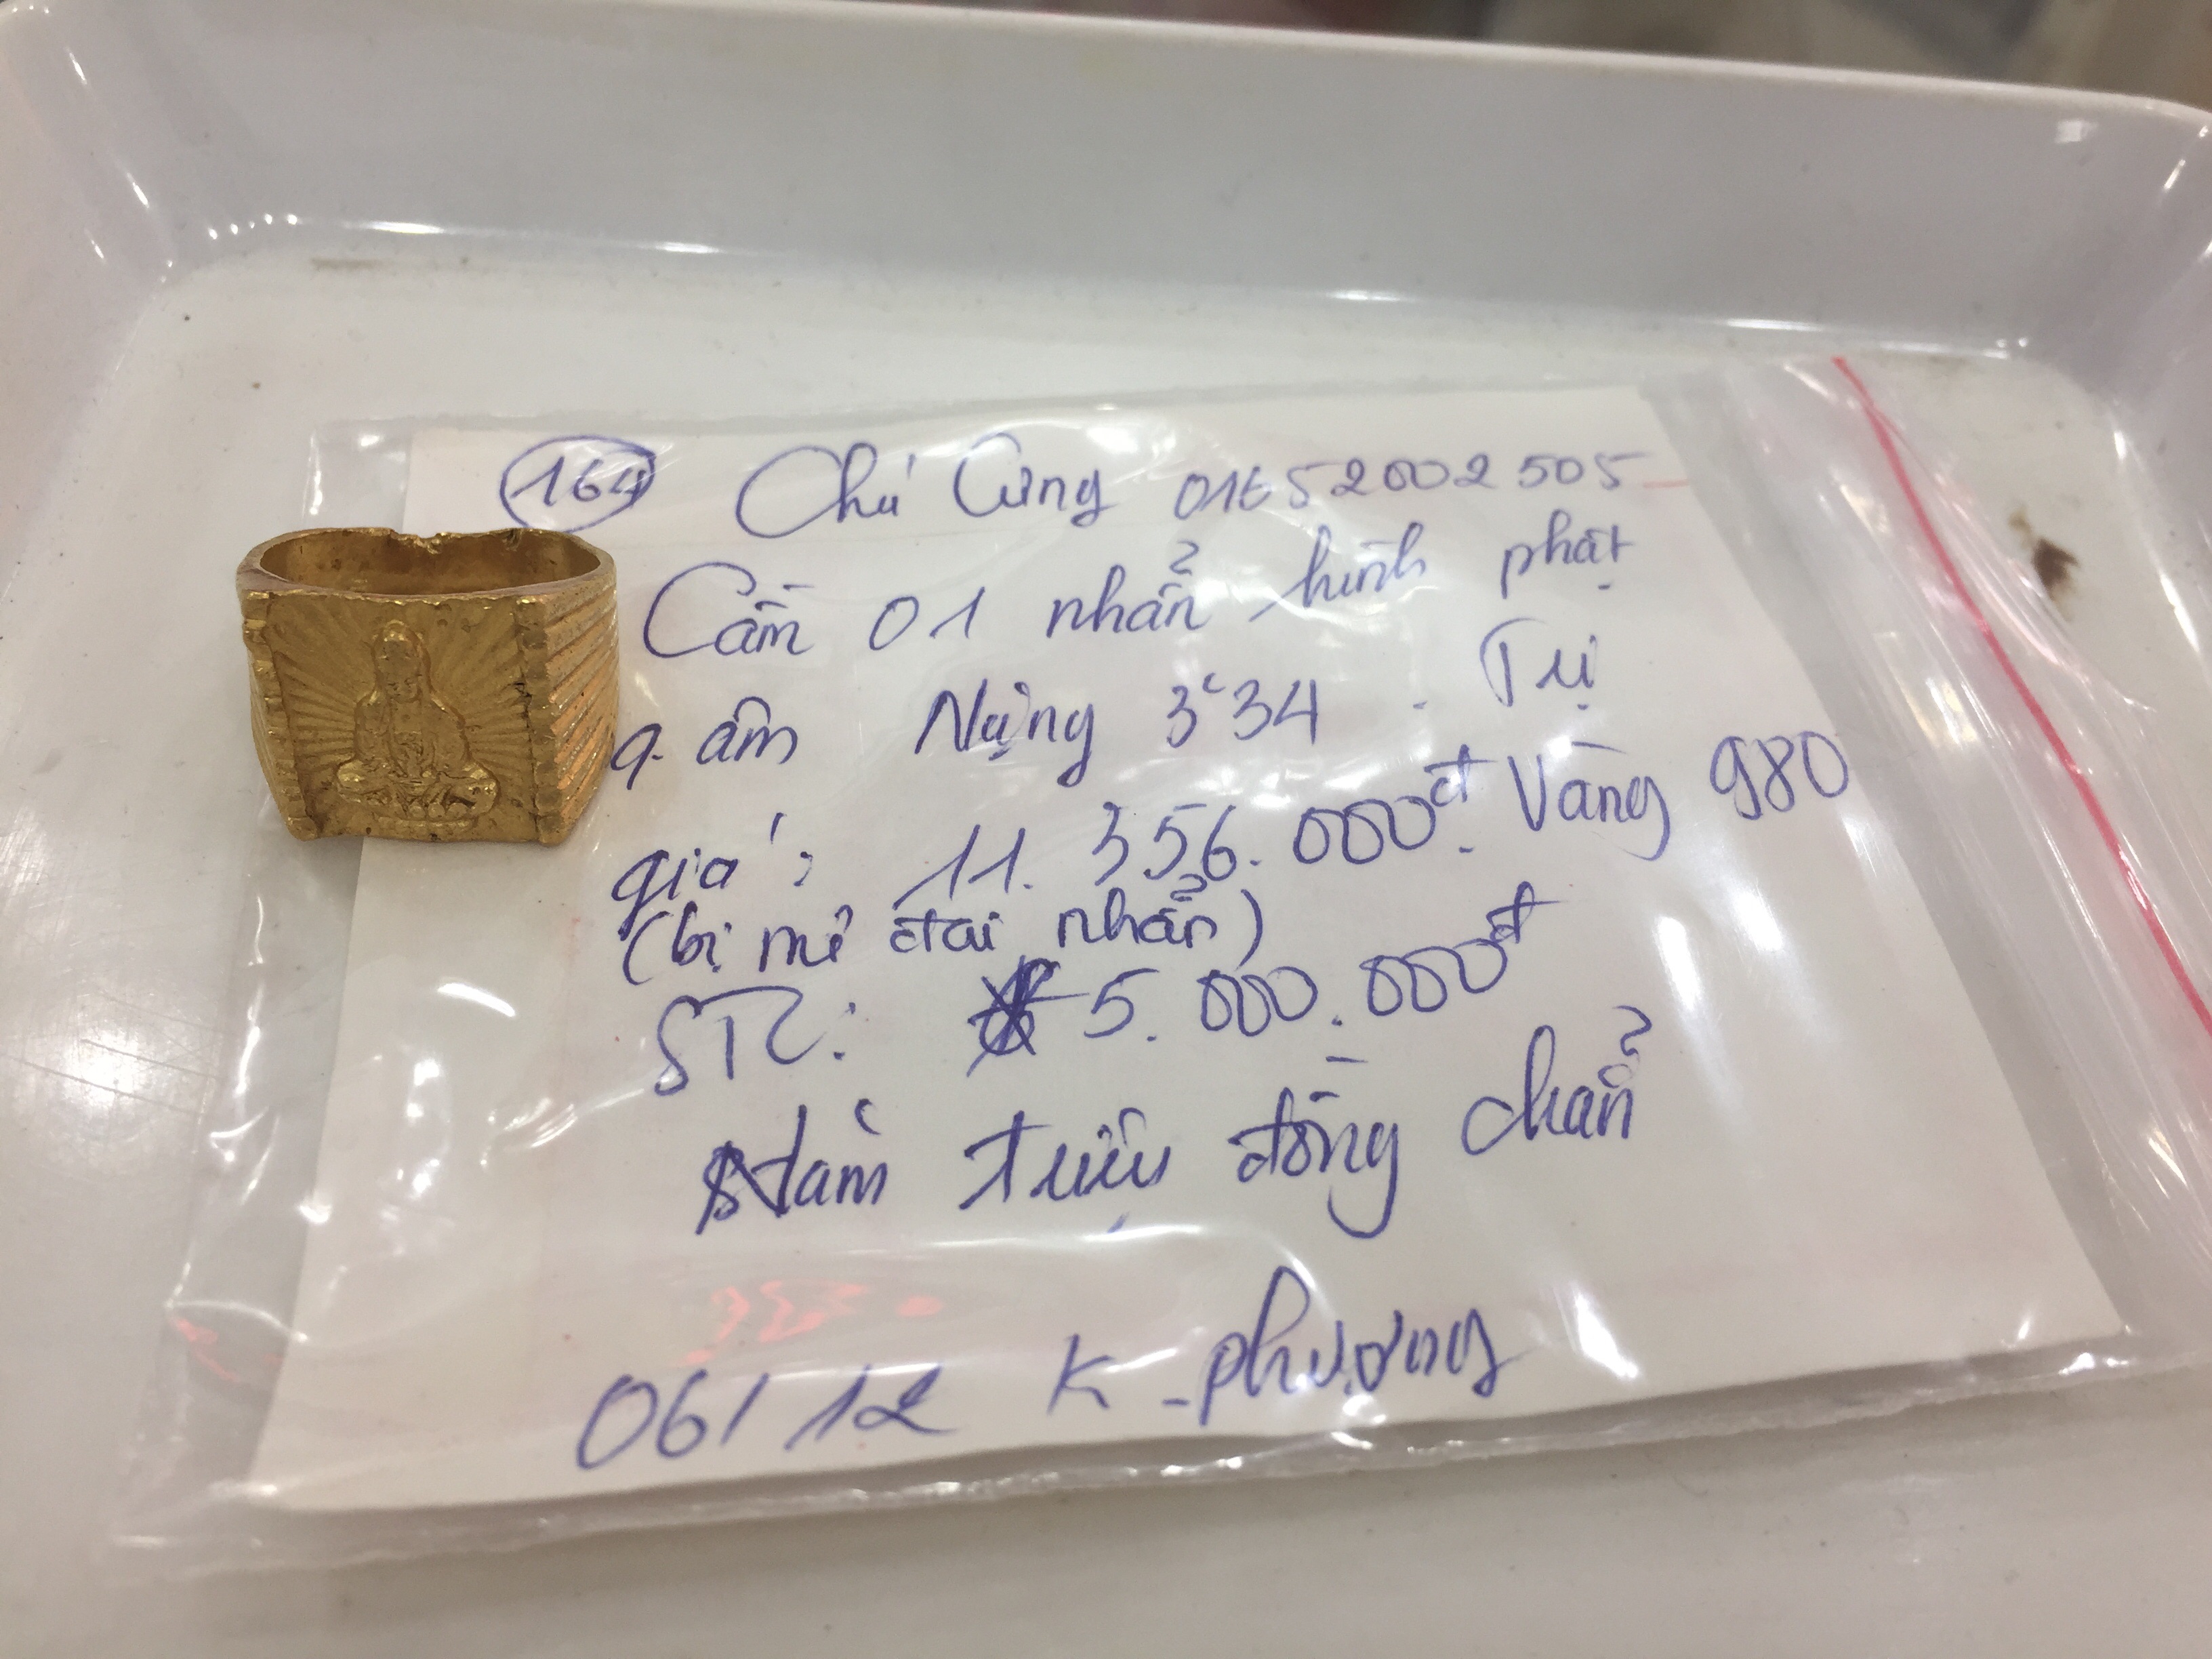 164 Chú Cưng 01652002505
Cầm 01 nhẫn hình phật
q. âm Nặng 3c34. Trị
giá: 11.356.000đ. Vàng 980
(bị mẻ đai nhẫn)
STC: 5.000.000đ
Năm triệu đồng chẵn
06/12 K-phượng